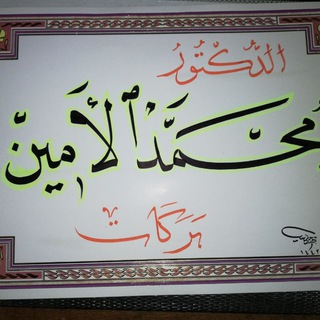 الدُّكْتُورُ
مُحَمَّدُ الْأَمِينُ
بَرَكَات
١٤٤٢